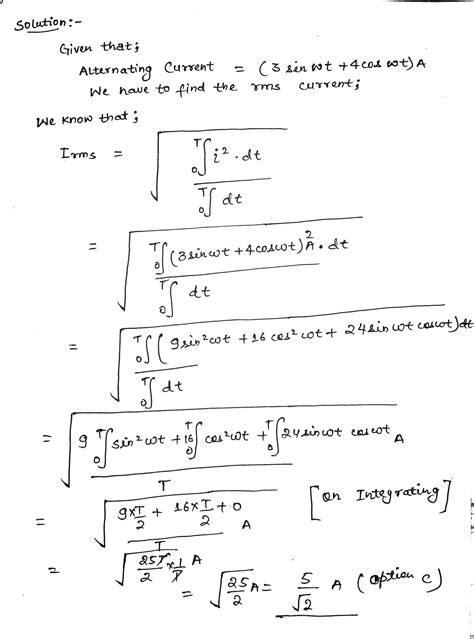 Solution:-
Given that;
Alternating Current = (3 sin ωt + 4 cos ωt) A
We have to find the rms current;
We know that;
Irms = √(₀∫ᵀ i² . dt / ₀∫ᵀ dt)
= √(₀∫ᵀ (3 sin ωt + 4 cos ωt)² A . dt / ₀∫ᵀ dt)
= √(₀∫ᵀ (9 sin² ωt + 16 cos² ωt + 24 sin ωt cos ωt) dt / ₀∫ᵀ dt)
= √(9 ₀∫ᵀ sin² ωt + 16 ₀∫ᵀ cos² ωt + ₀∫ᵀ 24 sin ωt cos ωt / T) A
= √(9 × T/2 + 16 × T/2 + 0 / T) A [on Integrating]
= √(25T/2 × 1/T) A
= √(25/2) A = 5/√2 A (option c)